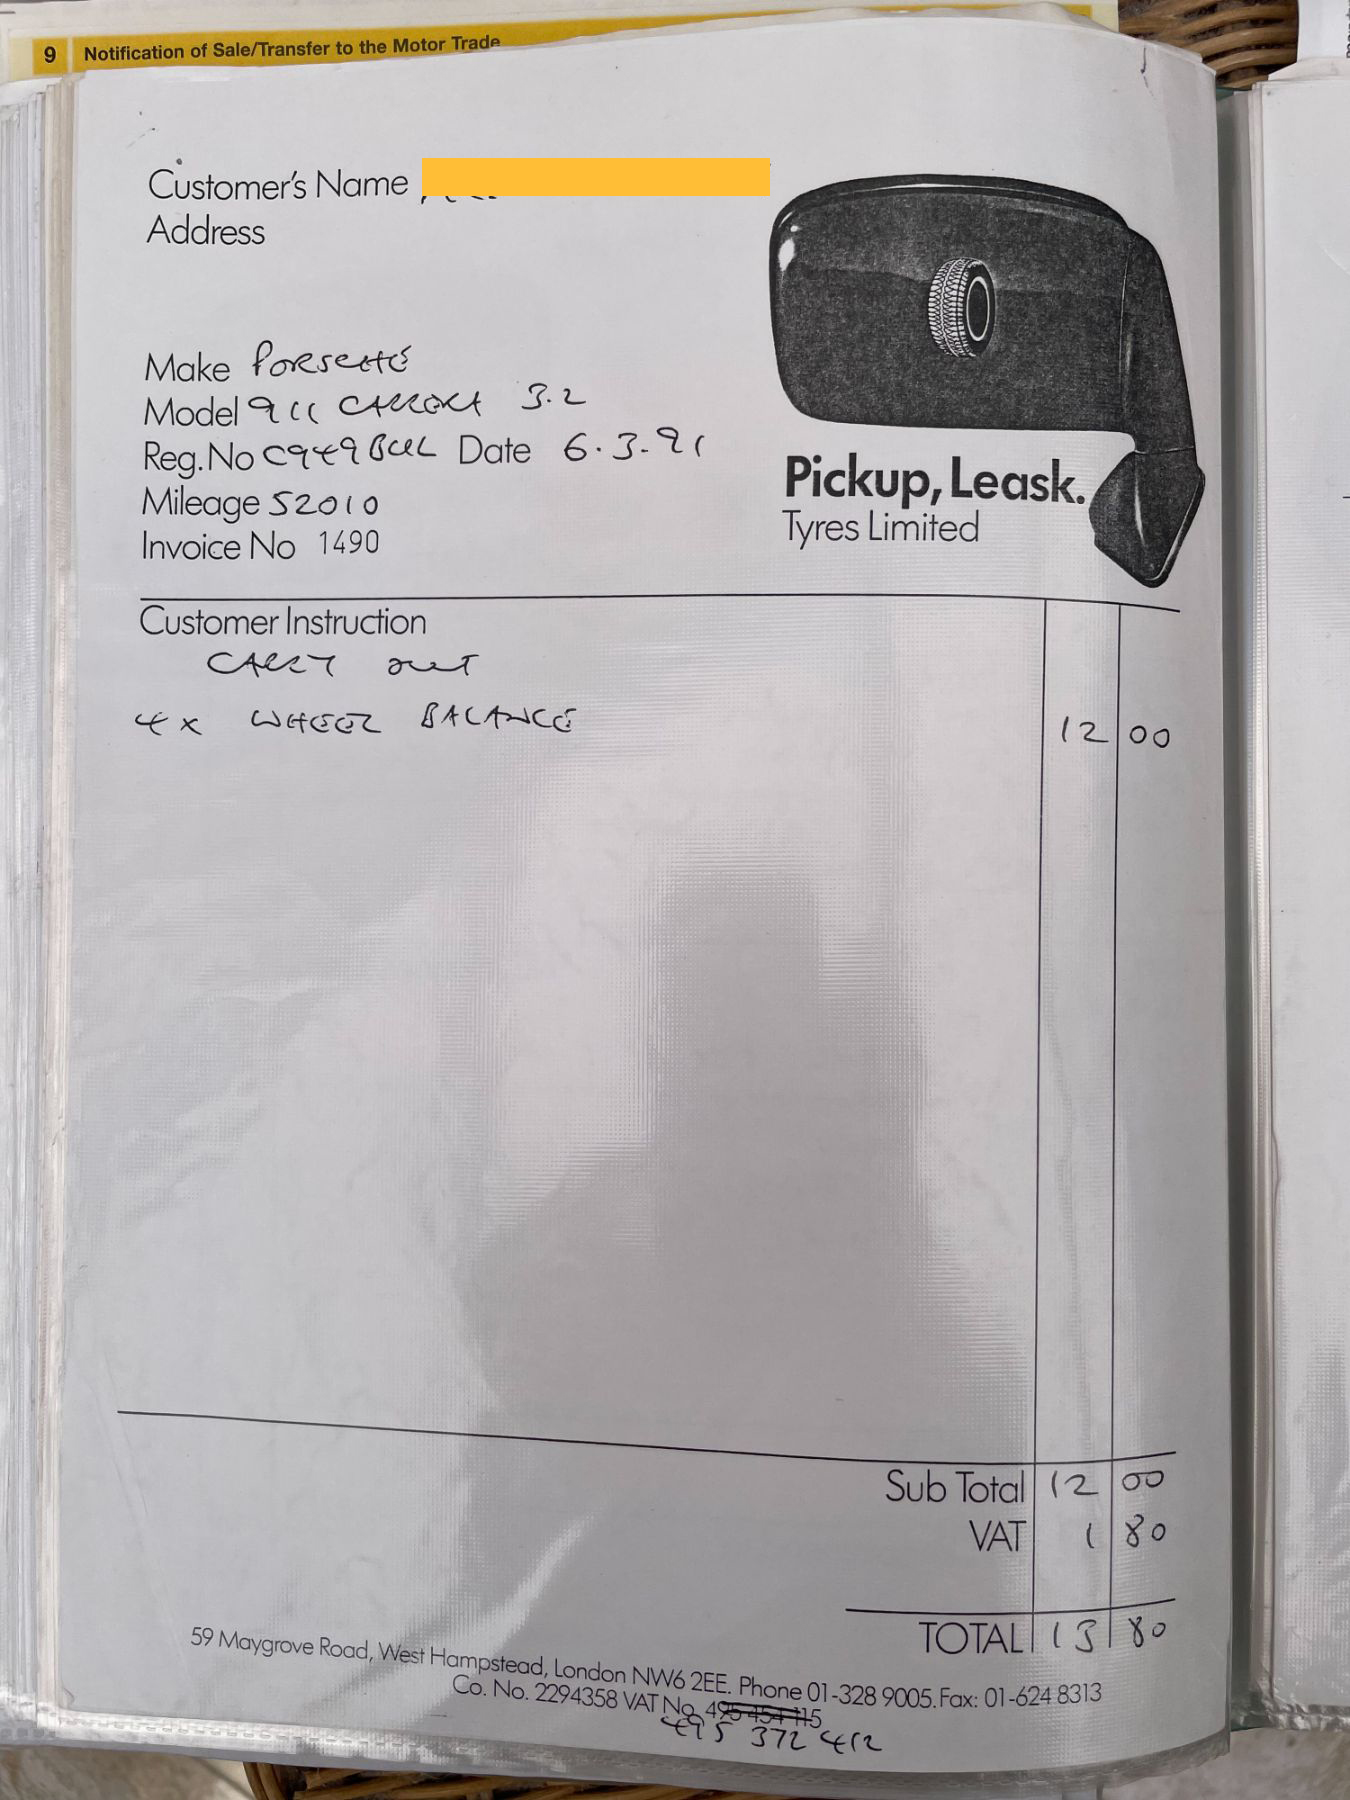 9 Notification of Sale/Transfer to the Motor Trade
Customer's Name
Address
Make PORSCHE
Model 911 CARRERA 3.2
Reg. No C949 BUL Date 6.3.91
Mileage 52010
Invoice No 1490
Pickup, Leask.
Tyres Limited
Customer Instruction
CARRY OUT
4x WHEEL BALANCE 12 00
Sub Total 12 00
VAT 1 80
TOTAL 13 80
59 Maygrove Road, West Hampstead, London NW6 2EE. Phone 01-328 9005. Fax: 01-624 8313
Co. No. 2294358 VAT No. 495 454 115
495 372 412